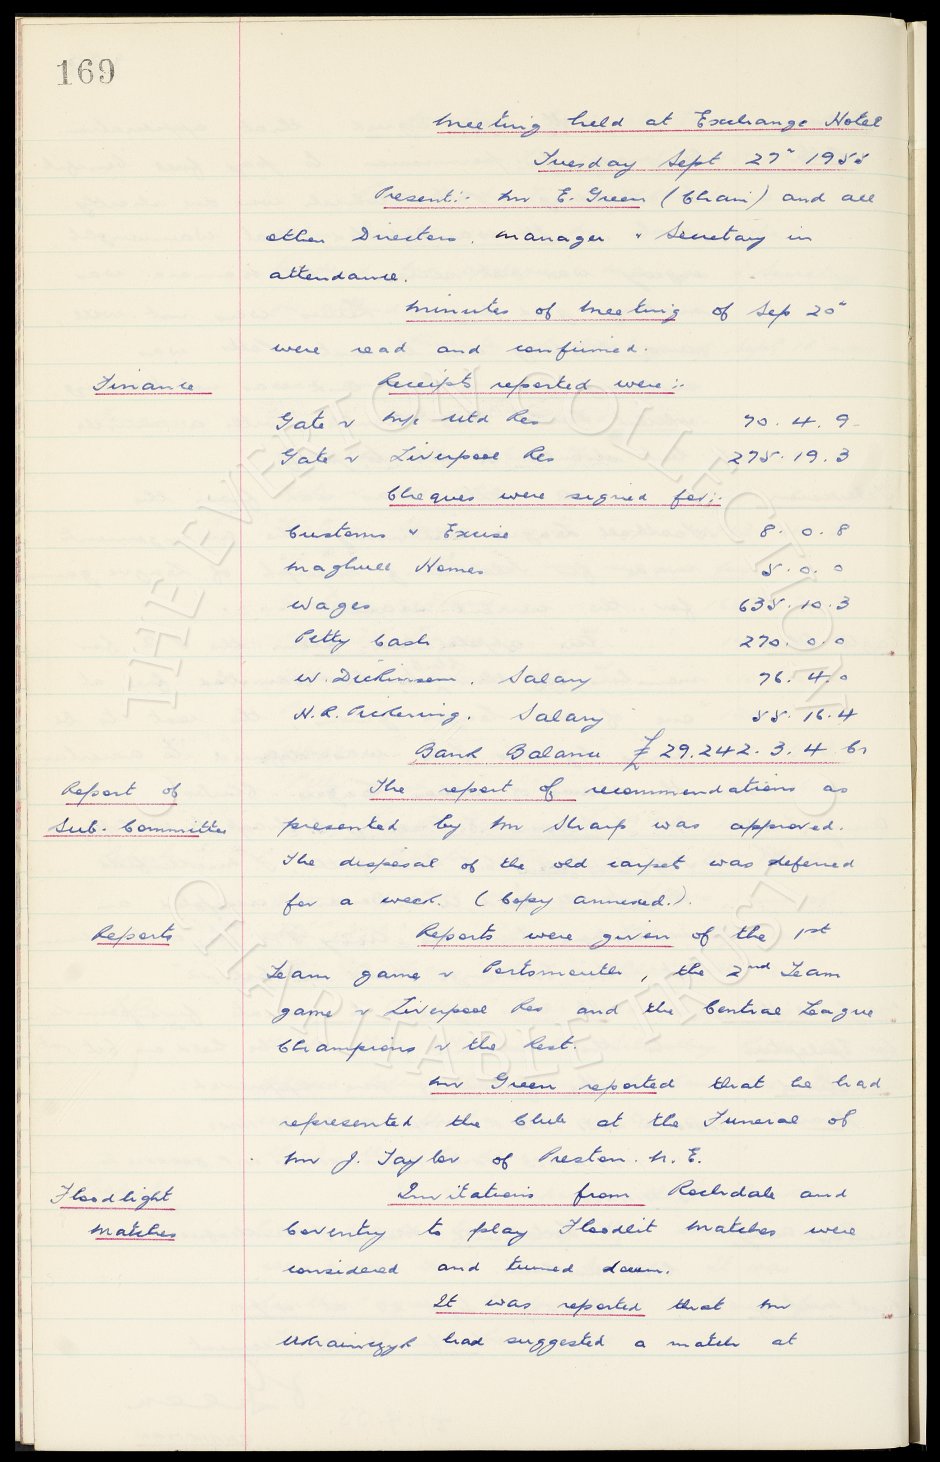 169
Meeting held at Exchange Hotel
Tuesday Sept 27" 1955
Present:- Mr E. Green (Chair) and all
other Directors. Manager & Secretary in
attendance.
Minutes of Meeting of Sep 20"
were read and confirmed.
Finance
Receipts reported were:-
Gate v M/c Utd Res 70. 4. 9
Gate v Liverpool Res 275. 19. 3
Cheques were signed for:-
Customs & Excise 8. 0. 8
Maghull Homes 5. 0. 0
Wages 635. 10. 3
Petty Cash 270. 0. 0
W. Dickinson. Salary 76. 4. 0
H.R. Pickering. Salary 55. 16. 4
Bank Balance £29,242. 3. 4 Cr
Report of
Sub. Committee
The report of recommendations as
presented by Mr Sharp was approved.
The disposal of the old carpet was deferred
for a week. (Copy annexed.).
Reports
Reports were given of the 1st
Team game v Portsmouth, the 2nd Team
game v Liverpool Res and the Central League
Champions v the Rest.
Mr Green reported that he had
represented the Club at the Funeral of
Mr J. Taylor of Preston. N. E.
Floodlight
Matches
Invitations from Rochdale and
Coventry to play Floodlit Matches were
considered and turned down.
It was reported that Mr
had suggested a match at
THE EVERTON COLLECTION
CHARITABLE TRUST